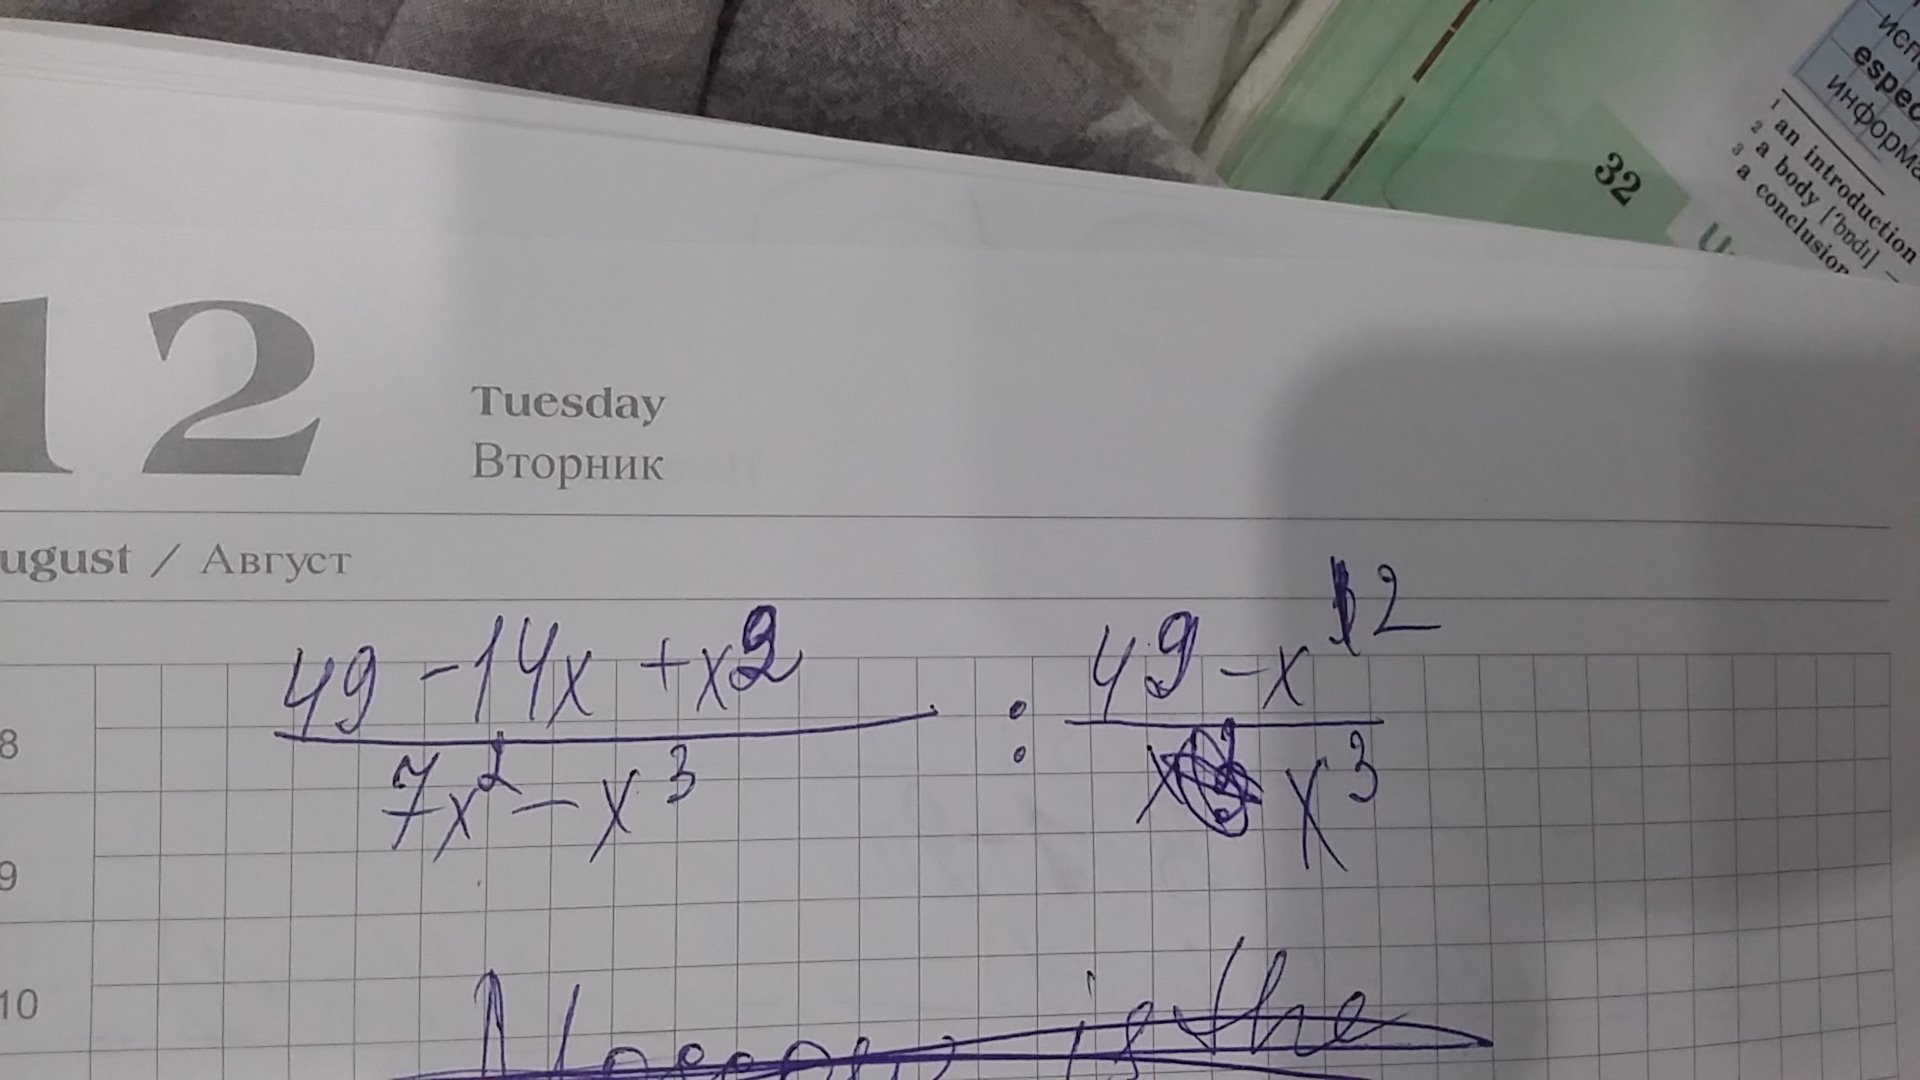 исп
espec
информа
1 an introduction
2 a body ['bɒdɪ] –
3 a conclusion
32
U
12
Tuesday
Вторник
ugust / Август
49 - 14x + x² : 49 - x²
7x² - x³ x³
8
9
10
is the